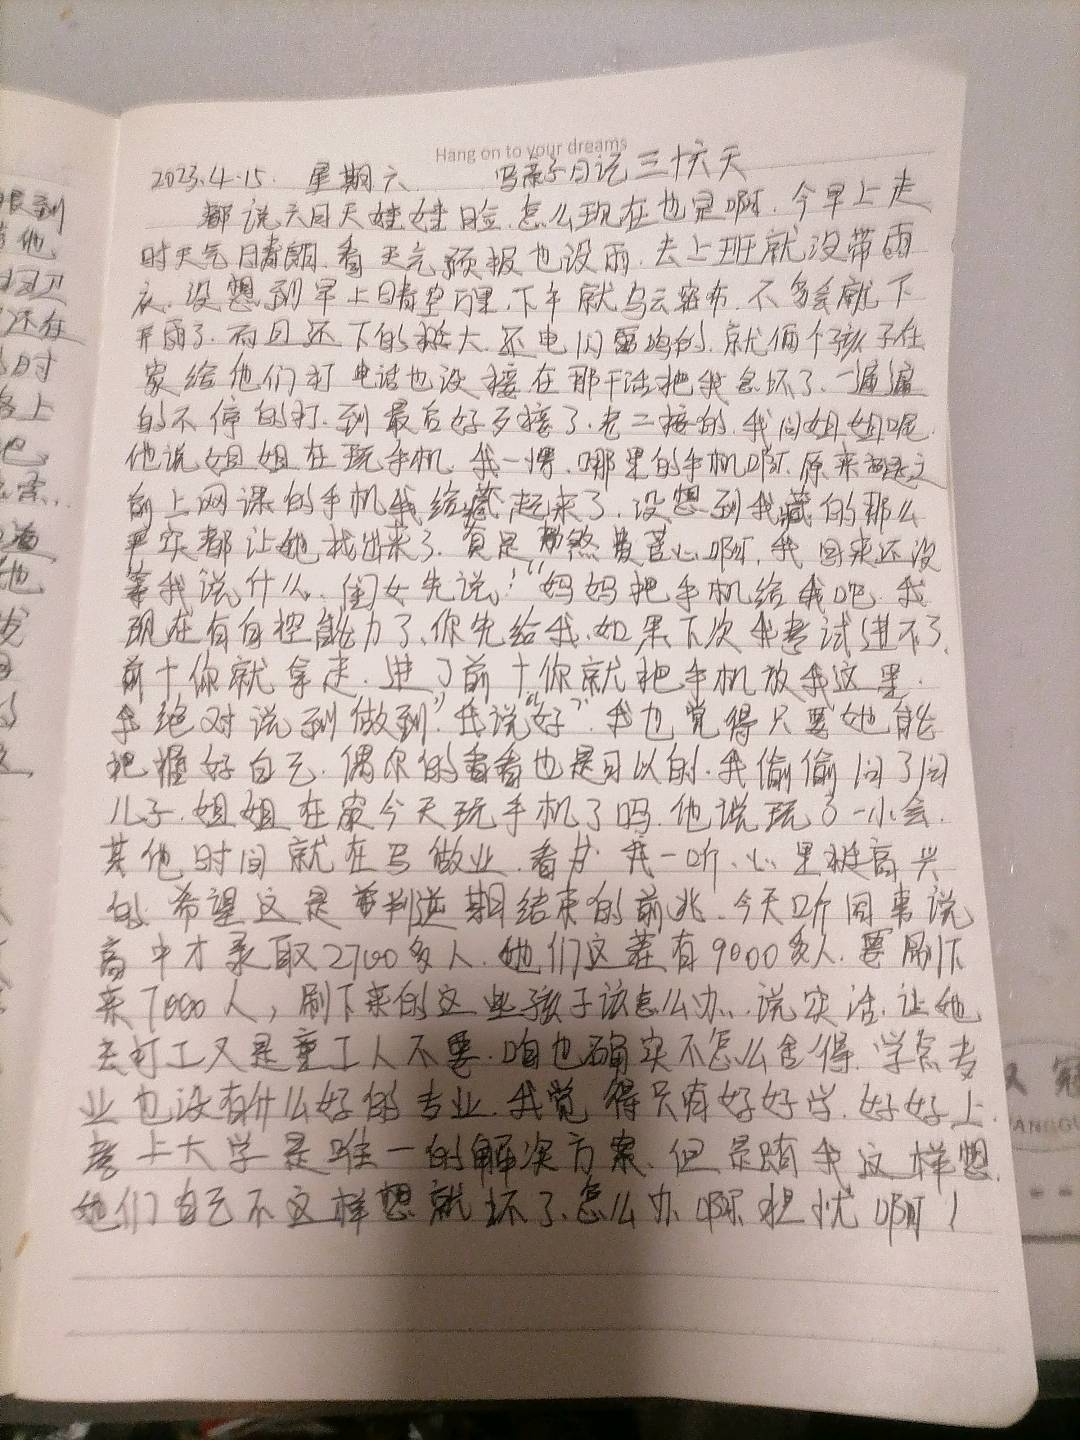 Hang on to your dreams
2023.4.15. 星期六 写亲子日记三十六天
都说六月天娃娃脸.怎么现在也是啊.今早上走
时天气晴朗.看天气预报也没雨.去上班就没带雨
衣.没想到早上晴空万里.下午就乌云密布.不多会就下
开雨了.而且还下的挺大.还电闪雷鸣的.就俩个孩子在
家给他们打电话也没接.在那干活把我急坏了.一遍遍
的不停的打.到最后好歹接了.老二接的.我问姐姐呢.
他说姐姐在玩手机.我一愣.哪里的手机啊.原来是之
前上网课的手机我给藏起来了.没想到我藏的那么
严实都让她找出来了.真是煞费苦心啊.我回来还没
等我说什么.闺女先说:"妈妈把手机给我吧.我
现在有自控能力了、你先给我.如果下次我考试进不了
前十你就拿走.进了前十你就把手机放我这里.
我绝对说到做到"我说"好".我也觉得只要她能
把握好自己.偶尔的看看也是可以的.我偷偷问了问
儿子.姐姐在家今天玩手机了吗.他说玩了一小会.
其他时间就在写做业.看书.我一听.心里挺高兴
的.希望这是叛逆期结束的前兆.今天听同事说
高中才录取2700多人.她们这茬有9000多人.要刷下
来7000人,刷下来的这些孩子该怎么办.说实话.让她
去打工又是童工人不要.咱也确实不怎么舍得.学点专
业也没有什么好的专业.我觉得只有好好学.好好上.
考上大学是唯一的解决方案.但是光有我这样想.
她们自己不这样想就坏了.怎么办啊担忧啊!